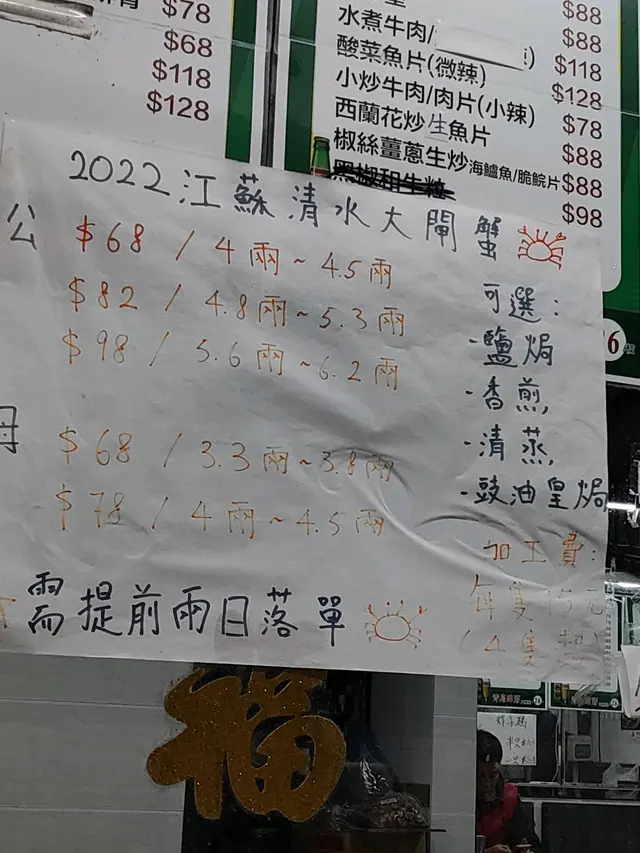 $78
$68
$118
$128
$88
水煮牛肉/ $88
酸菜魚片(微辣) $118
小炒牛肉/肉片(小辣) $128
西蘭花炒生魚片 $78
椒絲薑蔥生炒海鱸魚/脆脘片 $88
$88
$98
2022江蘇清水大閘蟹
公 $68 / 4兩~4.5兩
$82 / 4.8兩~5.3兩
$98 / 5.6兩~6.2兩
$68 / 3.3兩~3.8兩
$78 / 4兩~4.5兩
可選:
·鹽焗
·香煎
·清蒸
·豉油皇焗
加工費:
每隻
(4隻起)
需提前兩日落單
福